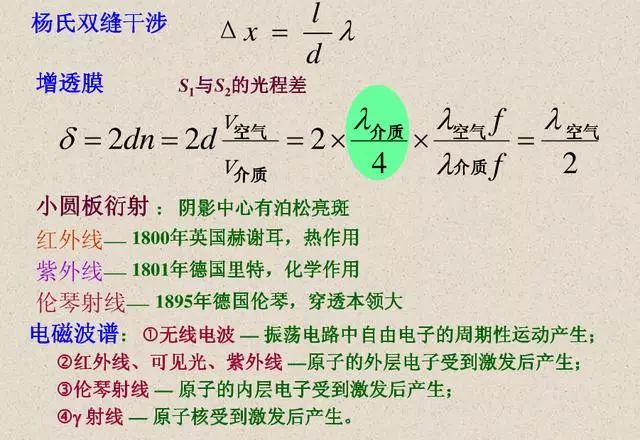 杨氏双缝干涉 Δx = l/d λ
增透膜 S₁与S₂的光程差
δ = 2dn = 2d V空气/V介质 = 2 × λ介质/4 × λ空气f/λ介质f = λ空气/2
小圆板衍射： 阴影中心有泊松亮斑
红外线— 1800年英国赫谢耳，热作用
紫外线— 1801年德国里特，化学作用
伦琴射线— 1895年德国伦琴，穿透本领大
电磁波谱：①无线电波 — 振荡电路中自由电子的周期性运动产生；
②红外线、可见光、紫外线 —原子的外层电子受到激发后产生；
③伦琴射线 — 原子的内层电子受到激发后产生；
④γ 射线 — 原子核受到激发后产生。